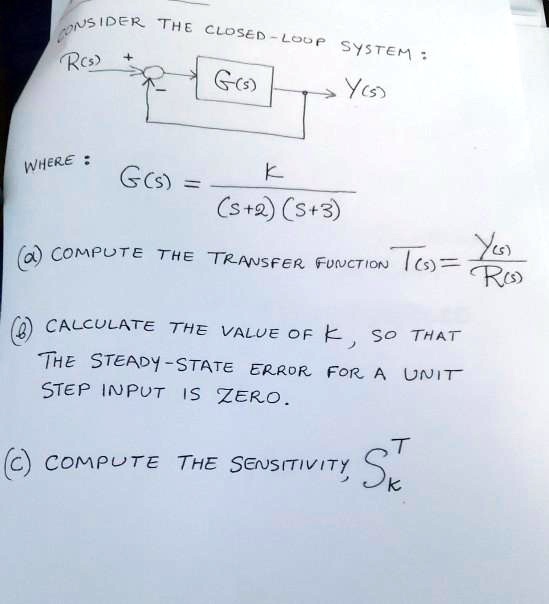 CONSIDER THE CLOSED-LOOP SYSTEM :
R(s) + G(s) Y(s)
-
WHERE :
G(s) = K / (S+2) (S+3)
(a) COMPUTE THE TRANSFER FUNCTION T(s) = Y(s) / R(s)
(b) CALCULATE THE VALUE OF K, SO THAT
THE STEADY-STATE ERROR FOR A UNIT
STEP INPUT IS ZERO.
(c) COMPUTE THE SENSITIVITY, S T K